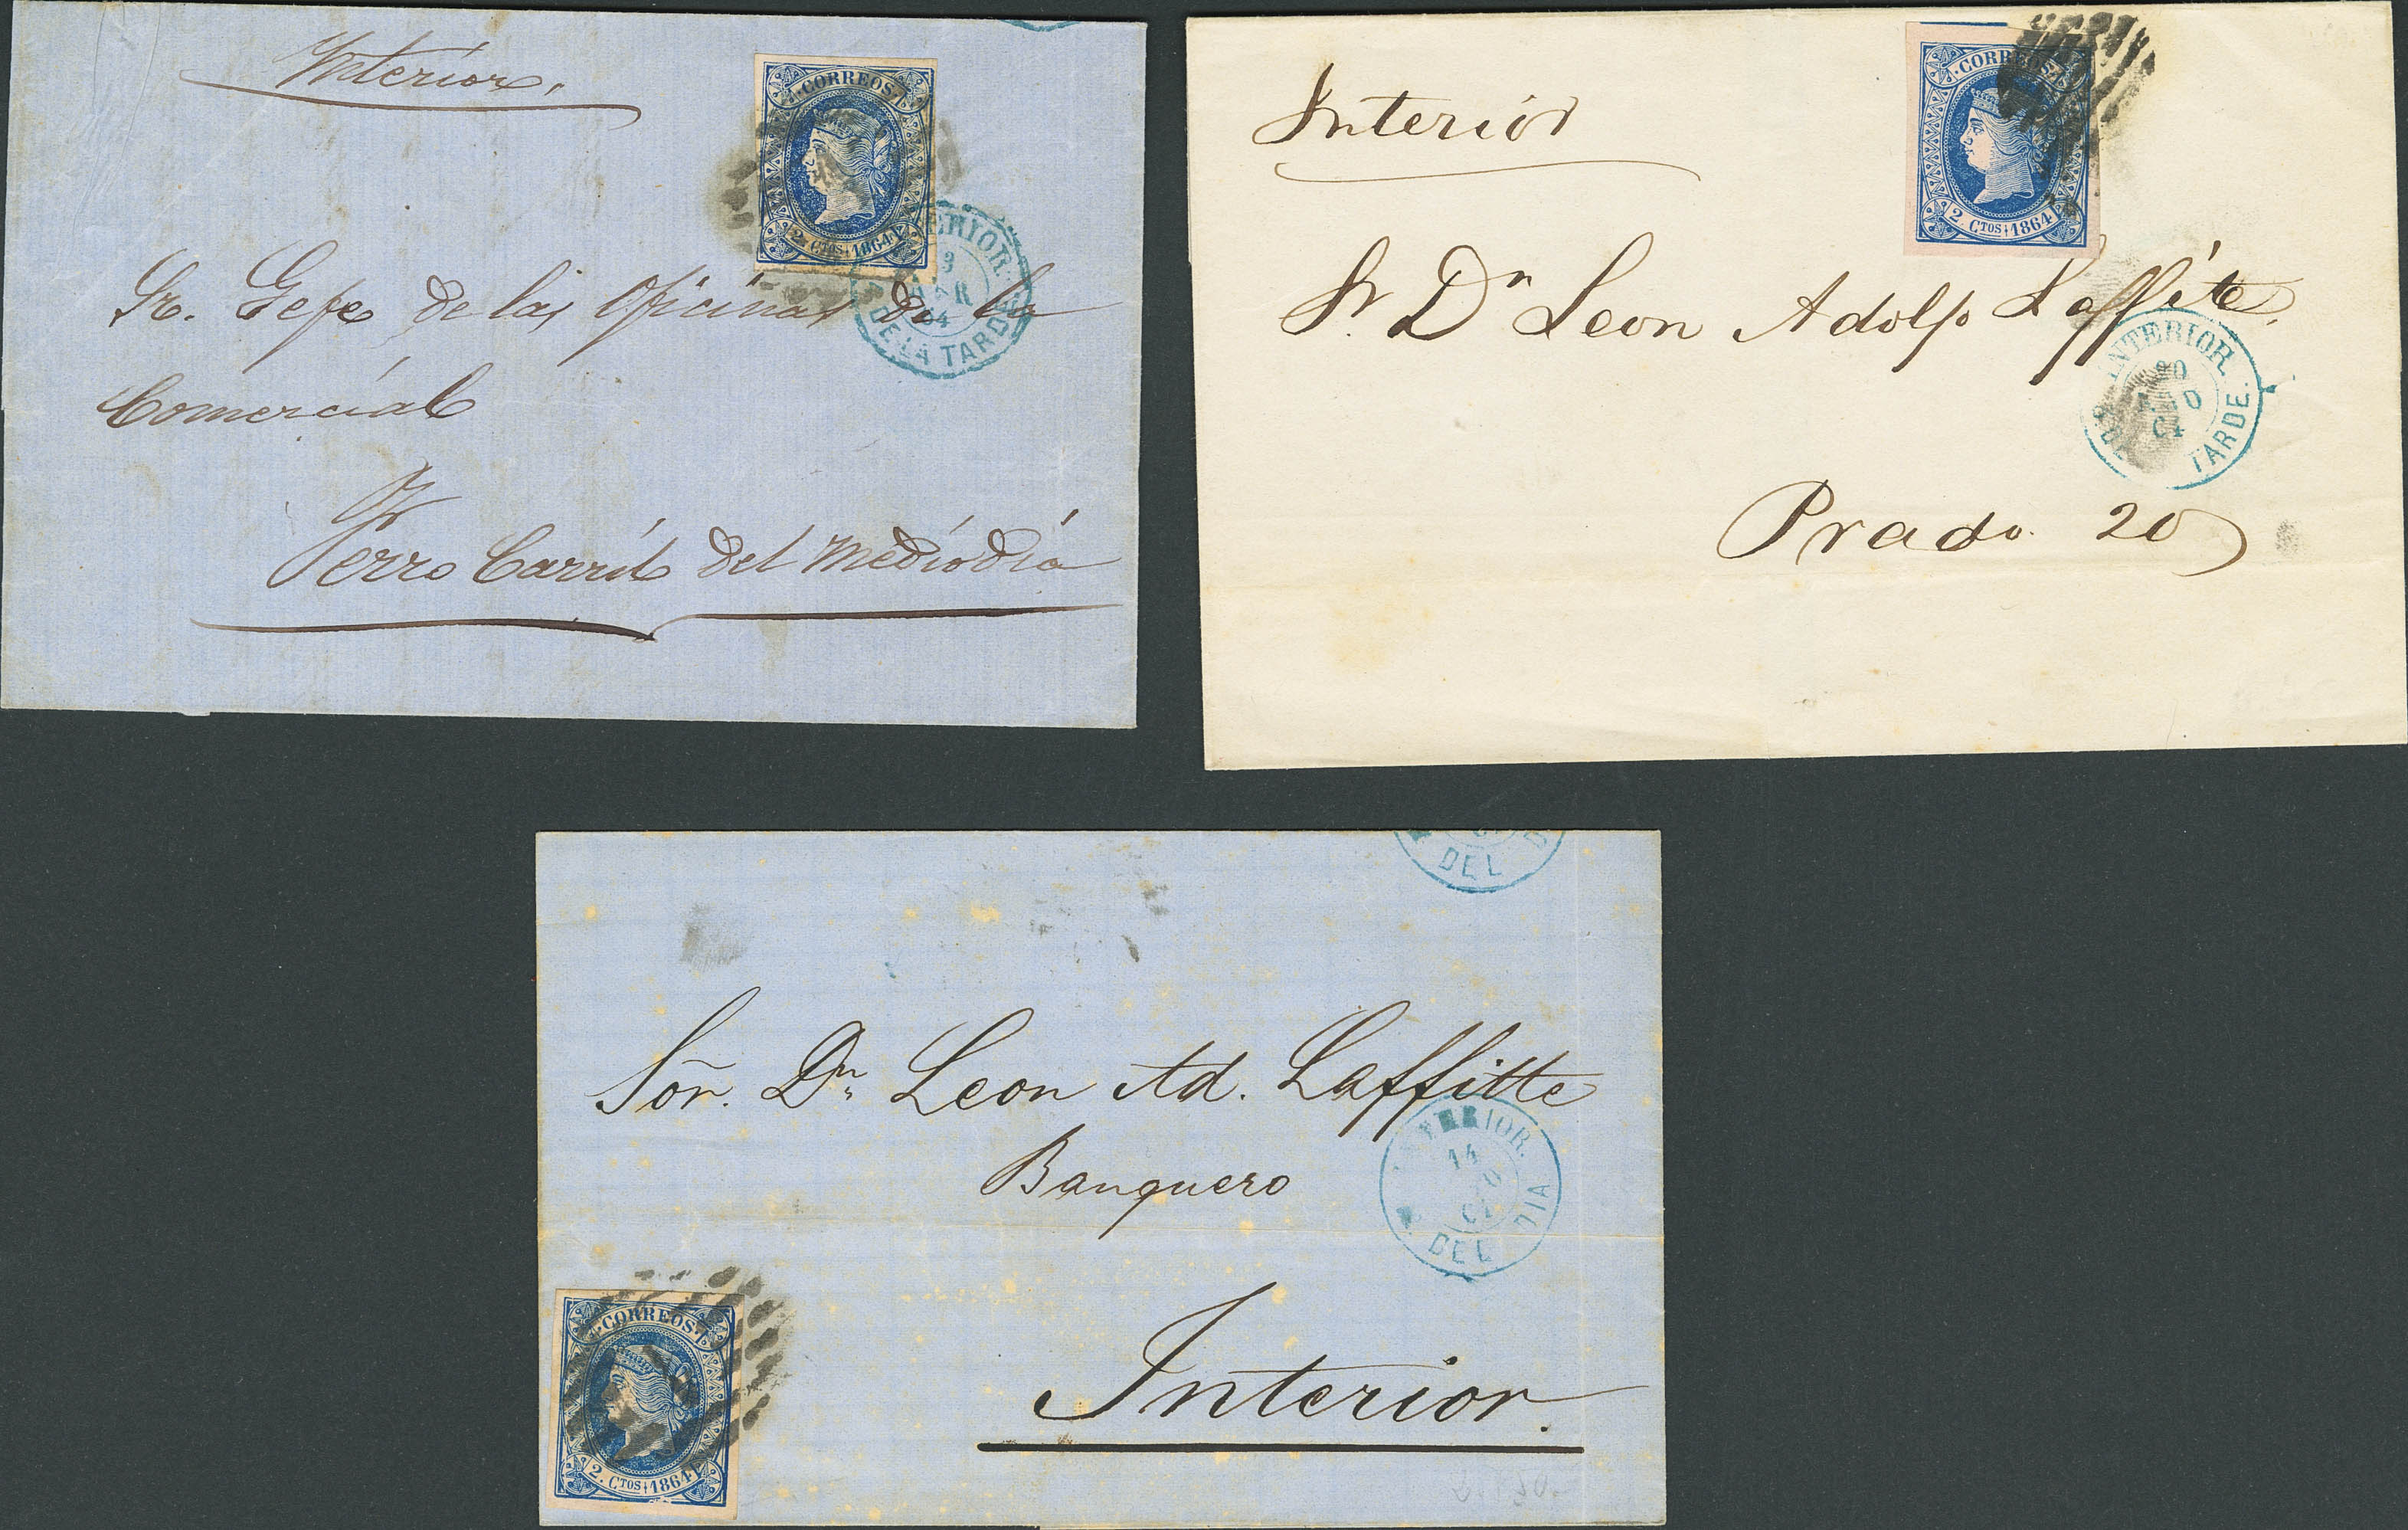 Interior.
CORREOS
2 CTOS 1864
Sr. Gefe de las Oficinas de la
Comercial
Ferro Carril del Mediodia
DE LA TARDE
Interior
CORREOS
2 CTOS 1864
Sr. Dn Leon Adolfo Laffite.
INTERIOR.
TARDE.
Prado 20
DEL
Sor. Dn Leon Ad. Laffitte
Banquero
14
DEL DIA
Interior.
CORREOS
2 CTOS 1864